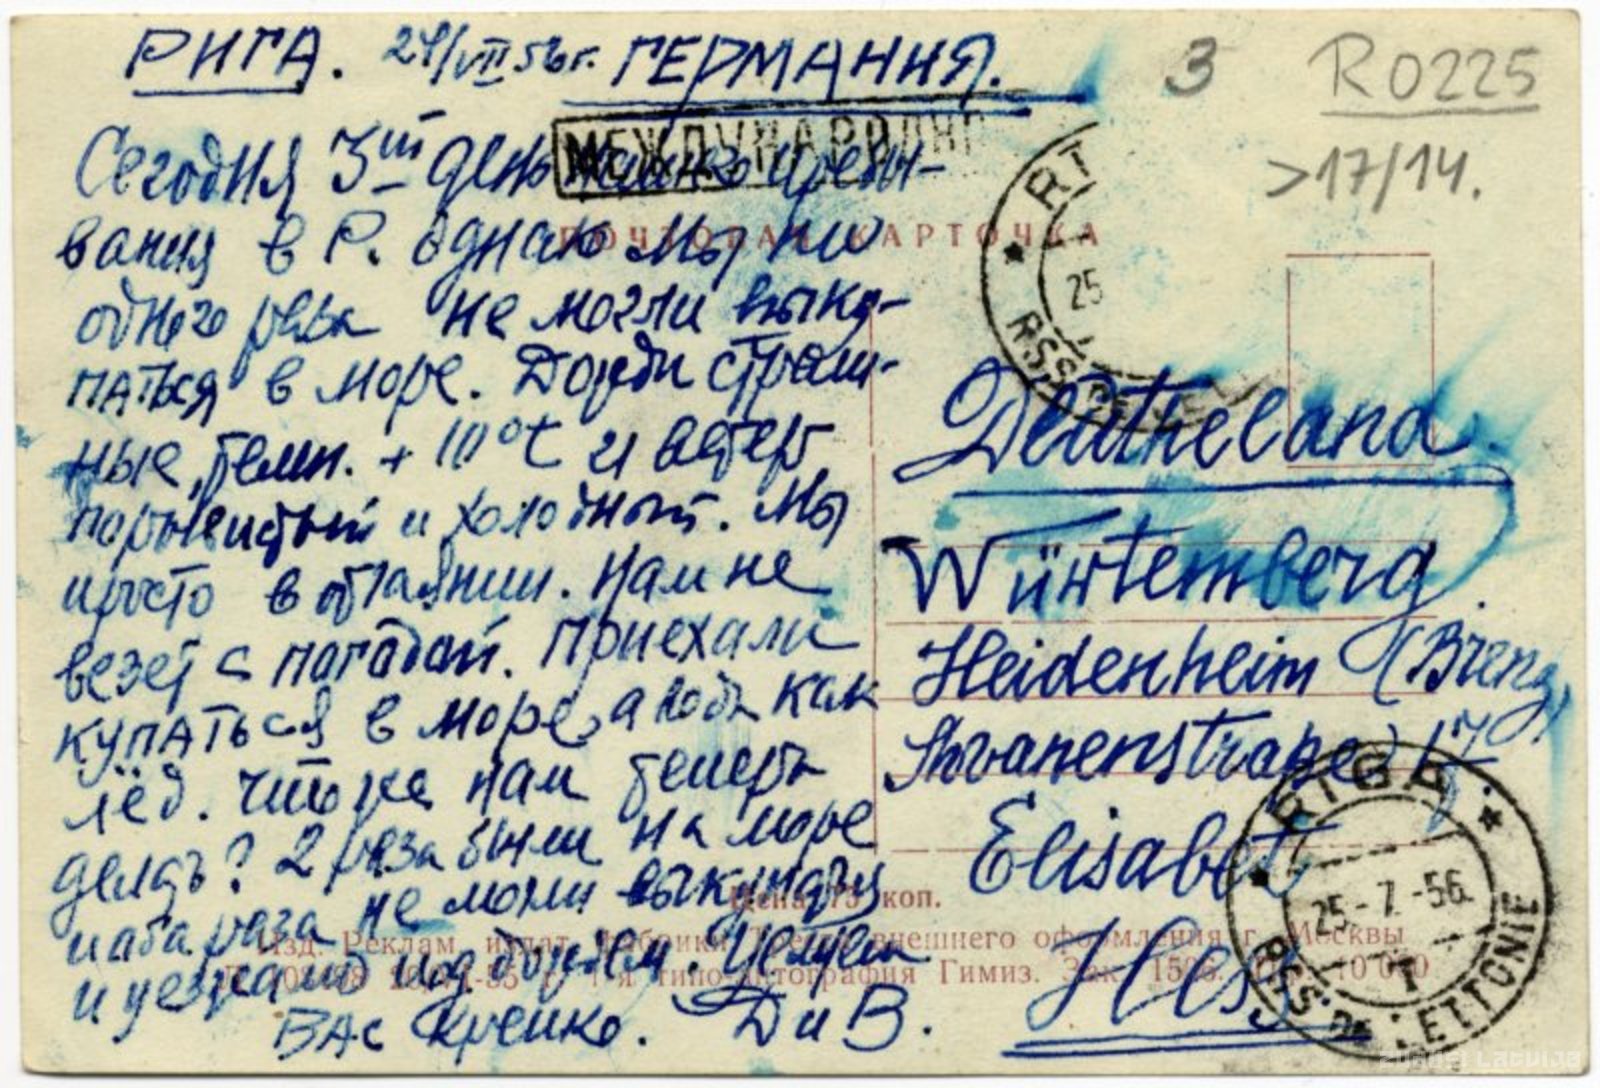 РИГА. 24/VII 56 г. ГЕРМАНИЯ.
3 R0225
>17/14.
МЕЖДУНАРОДН
Сегодня 3ий день нашего пребы-
вания в Р. однако мы ни
одного раза не могли выку-
паться в море. Дожди страш-
ные, темп. + 10°t и ветер
порывистый и холодный. Мы
просто в отчаянии. Нам не
везет с погодой. Приехали
купаться в море, а вода как
лёд. Что же нам теперь
делать? 2 раза были на море
и оба раза не могли выкупаться
и уезжали под дождём. Целуем
Вас крепко. Д и В.
ПОЧТОВАЯ КАРТОЧКА
Deutheland.
Würtemberg.
Heidenheim (Breng,
17
Elisabet
Hess
Цена 75 коп.
Изд. Реклам. издат. фабрики внешнего оформления г. Москвы
1-я типо-литография Гимиз. Зак. 1506. 10 000
25
RSS DE
RIGA
25-7-56
RSS DE LETTONIE
ZUDUSI LATVIJA